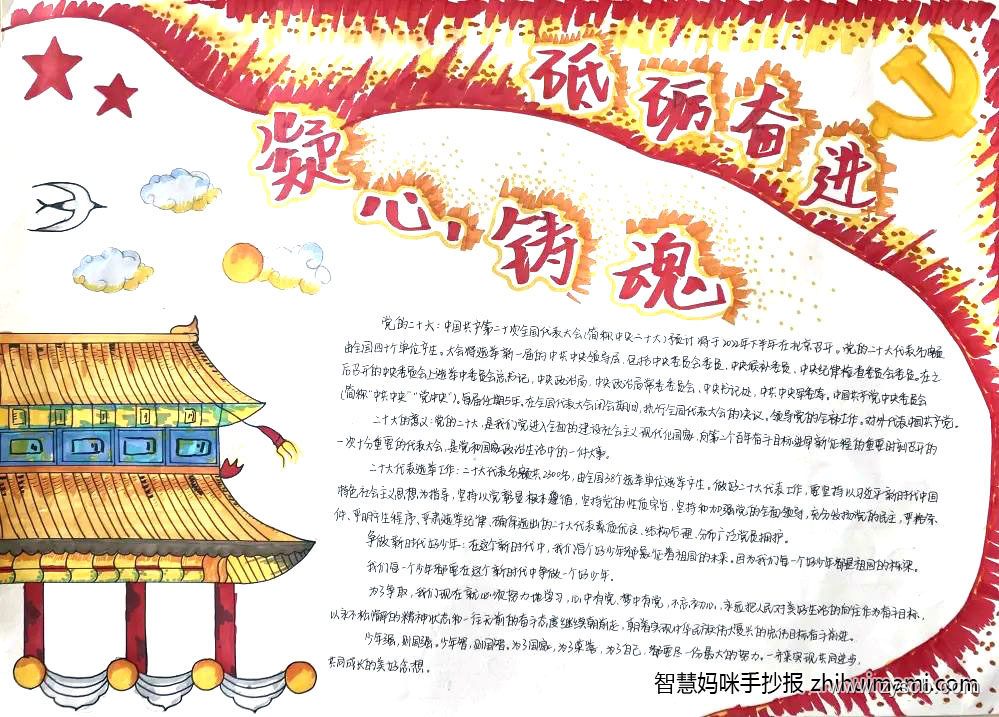 砥砺奋进
凝心铸魂
党的二十大：中国共产党第二十次全国代表大会(简称中共二十大)预计将于2022年下半年在北京召开。党的二十大代表名额
由全国四十个单位产生。大会将选举新一届的中共中央领导层，包括中央委员会委员、中央候补委员、中央纪律检查委员会委员。在之
后召开的中央委员会上选举中委员会总书记，中央政治局，中央政治局常务委员会，中央书记处，中共中央军委等。中国共产党中央委员会
(简称"中共中央""党中央")。每届任期5年。在全国代表大会闭会期间，执行全国代表大会的决议。领导党的全部工作。对外代表中国共产党。
二十大的意义：党的二十大，是我们党进入全面建设社会主义现代化国家，向第二个百年奋斗目标进军新征程的重要时刻召开的
一次十分重要的代表大会，是党和国家政治生活中的一件大事。
二十大代表选举工作：二十大代表名额共2300名，由全国38个选举单位选举产生。做好二十大代表工作，要坚持以习近平新时代中国
特色社会主义思想为指导，坚持以党章是根本遵循，坚持党的性质宗旨，坚持和加强党的全面领导，充分发扬党的民主，严格条
件、严明产生程序、严肃选举纪律，确保选出的二十大代表素质优良、结构合理、分布广泛党员拥护。
争做新时代好少年：在这个新时代中，我们每个好少年都象征着祖国的未来。因为我们每一个好少年都是祖国的栋梁。
我们每一个少年都要在这个新时代中争做一个好少年。
为了争取，我们现在就必须努力地学习，心中有党、梦中有党，不忘初心，永远把人民对美好生活的向往作为奋斗目标，
以永不松懈的精神状态和一往无前的奋斗态度继续朝前走，朝着实现中华民族伟大复兴的宏伟目标奋斗前进。
少年强，则国强。少年智，则国智。为了国家，为了家，为了自己，都要尽一份最大的努力。一齐来实现共同进步，
共同成长的美好念想。
智慧妈咪手抄报 zhihuimami.com